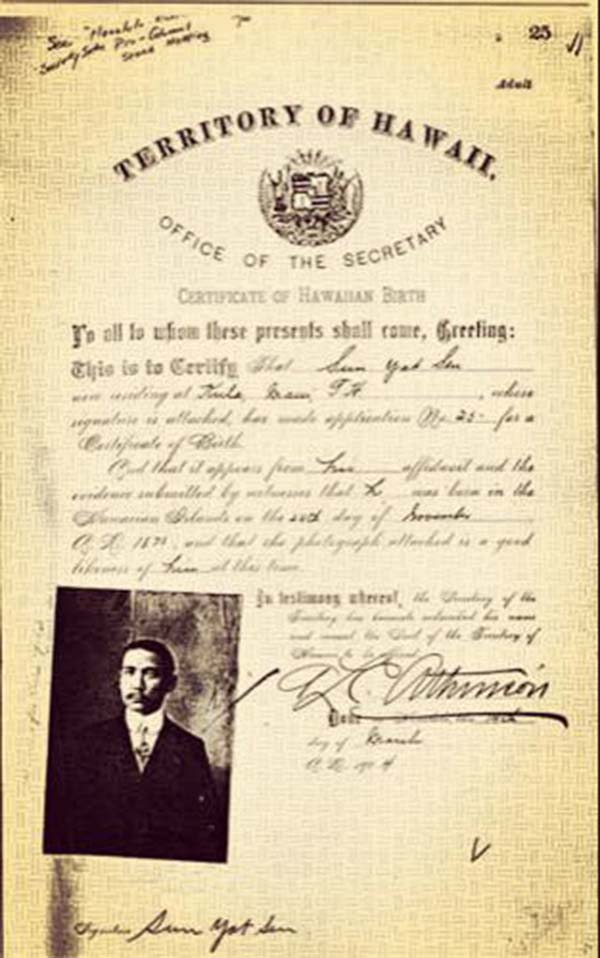 See "Honolulu
25
Adult
TERRITORY OF HAWAII.
OFFICE OF THE SECRETARY
CERTIFICATE OF HAWAIIAN BIRTH
To all to whom these presents shall come, Greeting:
This is to Certify That Sun Yat Sen
now residing at Kula, Maui, T.H. , whose
signature is attached, has made application No. 25 for a
Certificate of Birth
And that it appears from his affidavit and the
evidence submitted by witnesses that he was born in the
Hawaiian Islands on the 24th day of November
A.D. 1870, and that the photograph attached is a good
likeness of him at this time.
In testimony whereof, the Secretary of the
Territory has hereunto subscribed his name
and caused the Seal of the Territory of
Hawaii to be affixed.
A L C Atkinson
Date 14th
day of March
A.D. 1904
Signature Sun Yat Sen